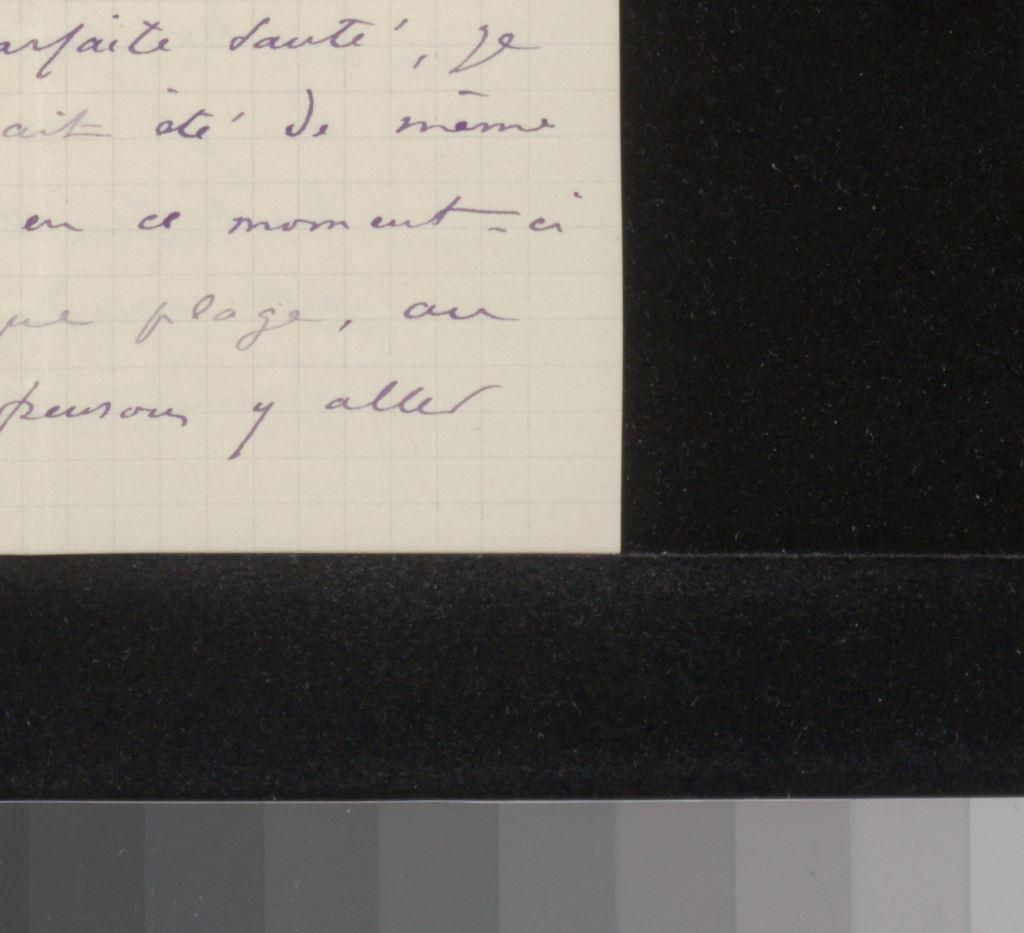 arfaite santé, je
ait été de même
en ce moment-ci
que plage, au
pensons y aller